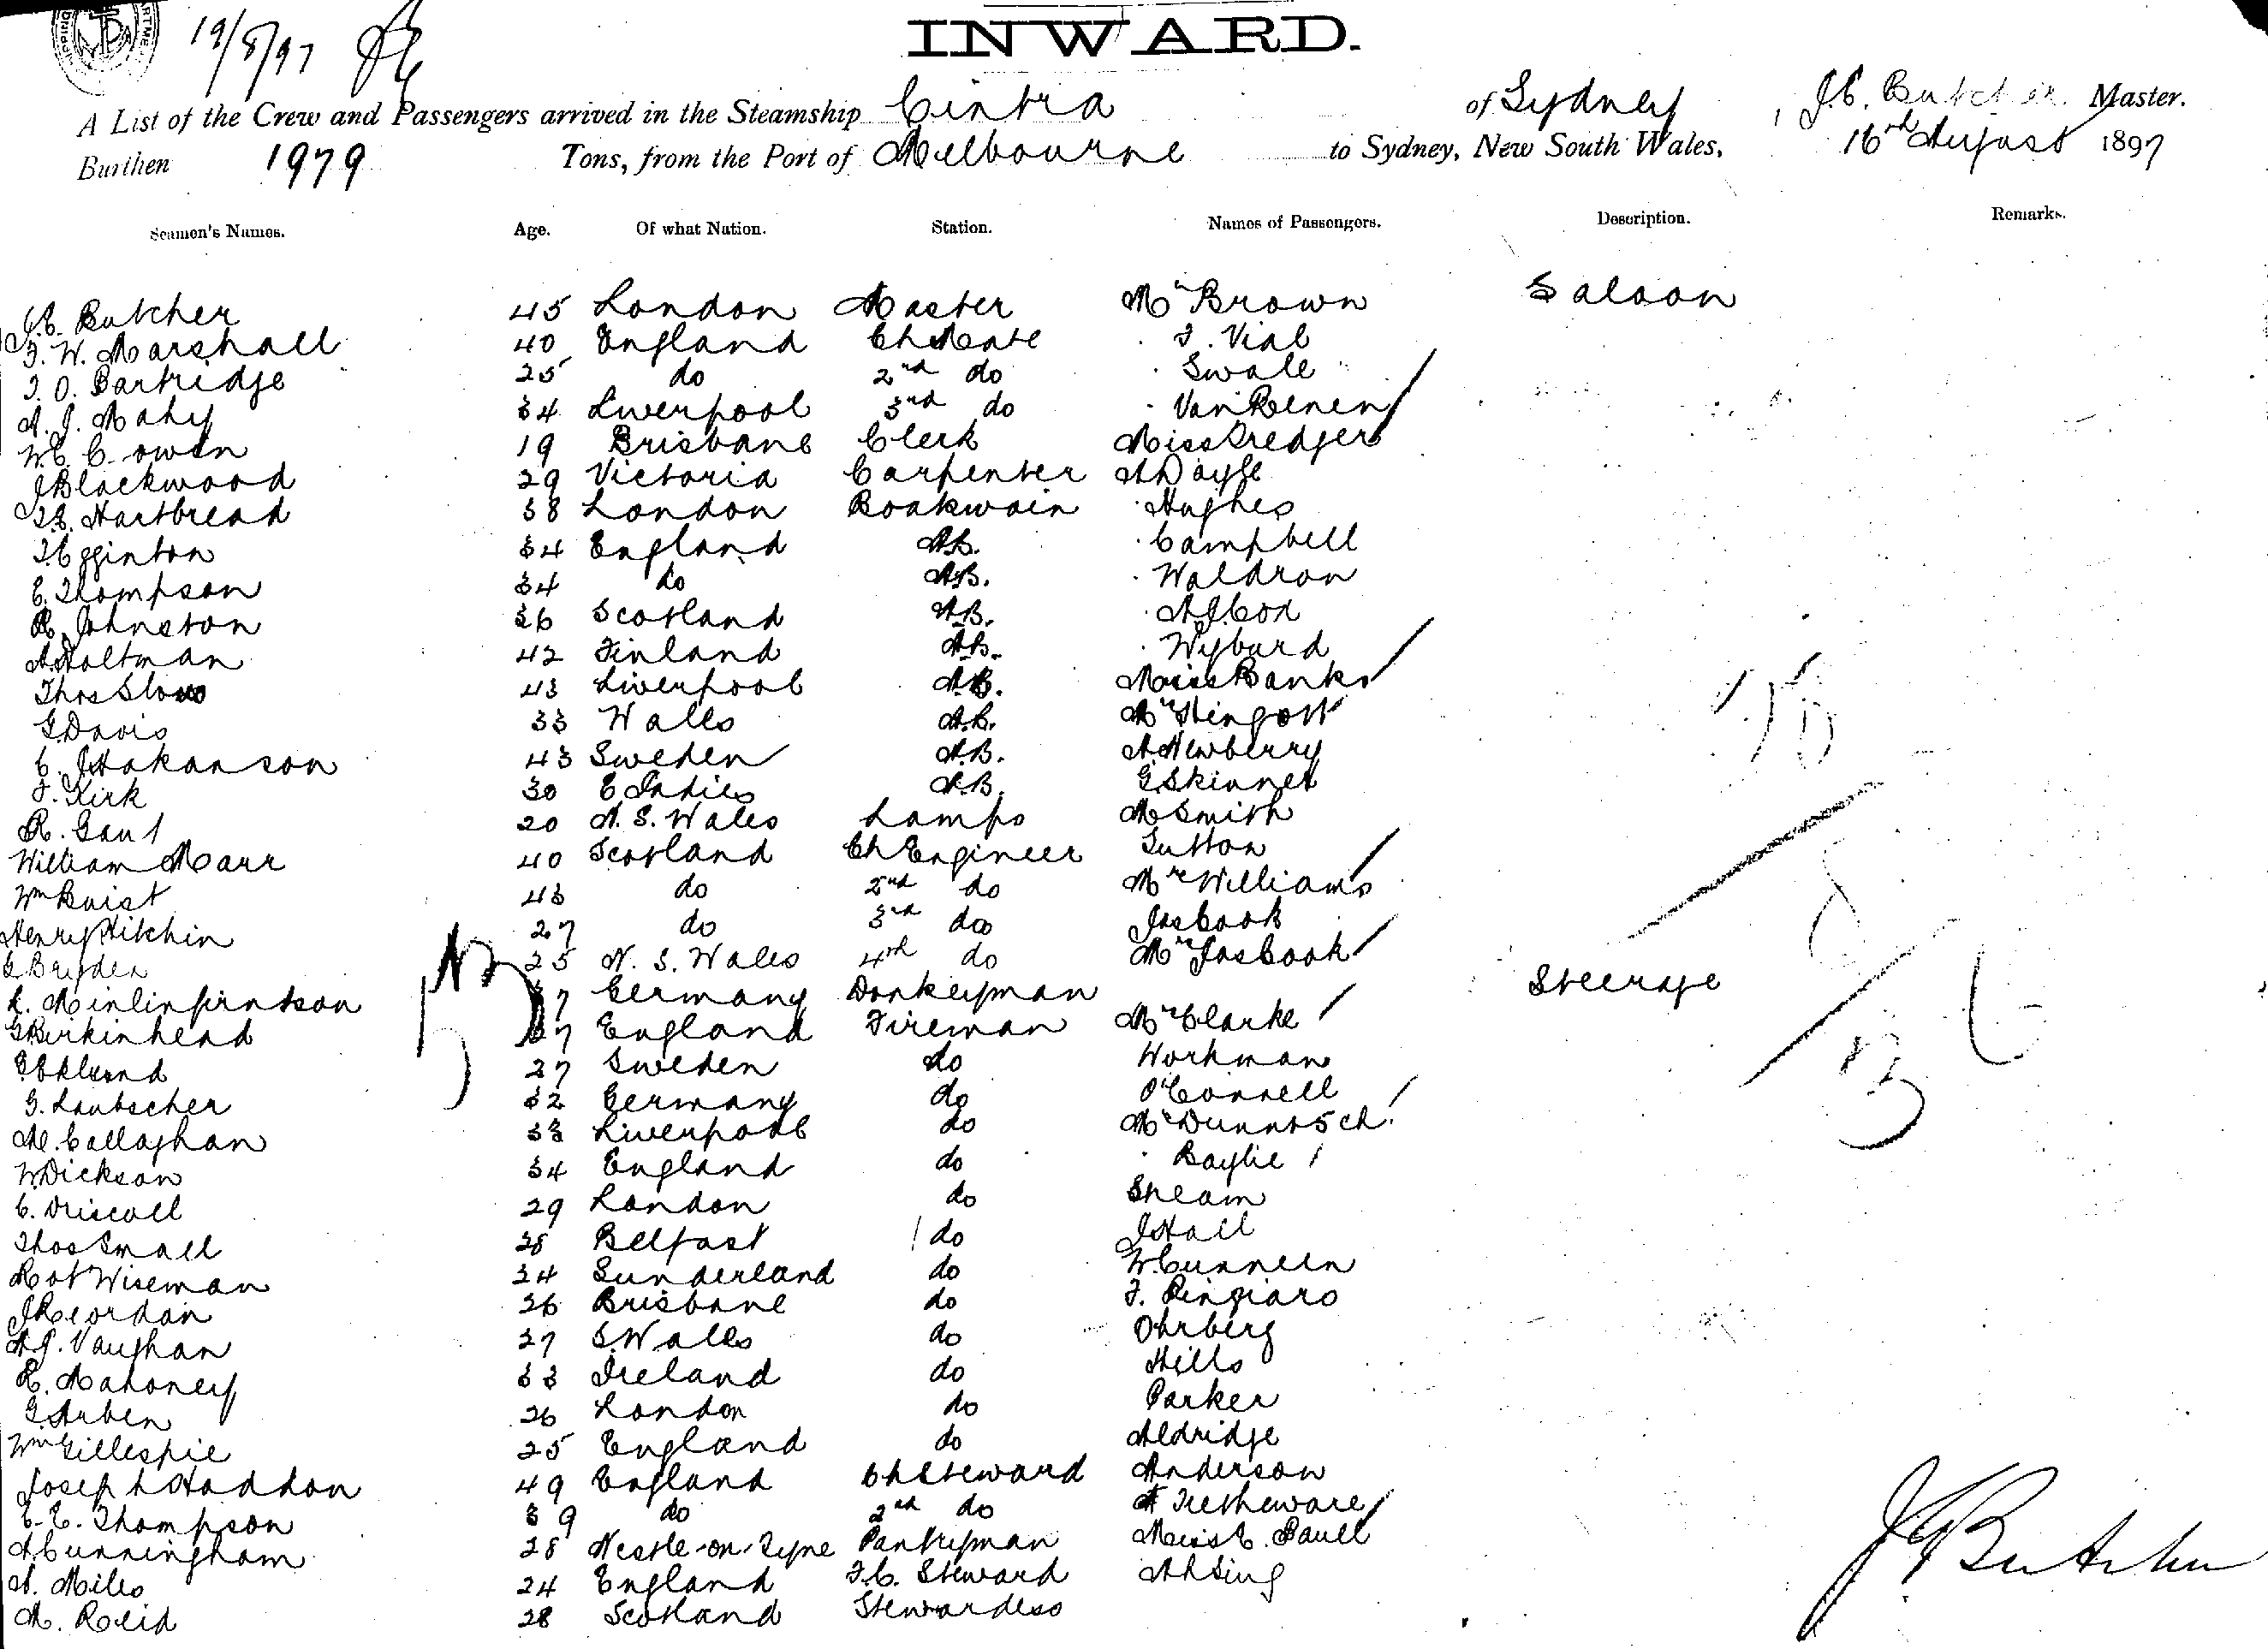 19/8/97
INWARD.
A List of the Crew and Passengers arrived in the Steamship Cintra of Sydney, J.C. Butcher Master.
Burthen 1979 Tons, from the Port of Melbourne to Sydney, New South Wales, 16th August 1897
Seamen's Names. Age. Of what Nation. Station. Names of Passengers. Description. Remarks.
J.C. Butcher 45 London Master Mr Brown Saloon
F. W. Marshall 40 England Ch Mate F. Vial
T. O. Bartridge 25 do 2nd do Swale
A. J. Mahy 34 Liverpool 3rd do Van Renen
W.C. Cowen 19 Brisbane Clerk Miss Dredger
J Blackwood 29 Victoria Carpenter A Doyle
Hartbread 38 London Boatswain Hughes
T. Egginton 34 England AB. Campbell
C. Thompson 34 do AB. Waldron
R. Johnston 36 Scotland AB. A J Cox
A. Holtman 42 Finland AB. Wyburd
Thos Slow 43 Liverpool AB. Miss Banks
G. Davis 33 Wales A.B. Mr
C. J Hakanson 43 Sweden A.B. A Newberry
J. Kirk 30 E Indies A.B. G Skinner
R. Gaut 20 N. S. Wales Lamps M Smith
William Marr 40 Scotland Ch Engineer Sutton
Wm Buist 43 do 2nd do Mrs Williams
Henry Hitchin 27 do 3rd do Jas Cook
G Bryden 25 N. S. Wales 4th do Mrs Jas Cook
K. 37 Germany Donkeyman Steerage
G Birkinhead 27 England Fireman Mrs Clarke
Eklund 27 Sweden do Workman
G. Laubscher 32 Germany do O'Connell
M. Callaghan 33 Liverpool do Mrs
W. Dickson 34 England do Baylie
C. Driscoll 29 London do Sheam
Thos Small 28 Belfast do J Hall
Robt Wiseman 34 Sunderland do W. Cunneen
J Reordan 26 Brisbane do F. Pingiaro
A.J. Vaughan 37 S. Wales do Ohrberg
R. Mahoney 33 Ireland do Hills
G. Arben 26 London do Parker
Wm Gillespie 25 England do Aldridge
Joseph Haddon 49 England Ch Steward Anderson
C. E. Thompson 39 do 2nd do Tretheware
A Cunningham 28 Ncstle-on-Tyne Pantryman Miss C. Paull
A. Miles 24 England F.C. Steward Ah Sing
M. Reid 28 Scotland Stewardess
J C Butcher